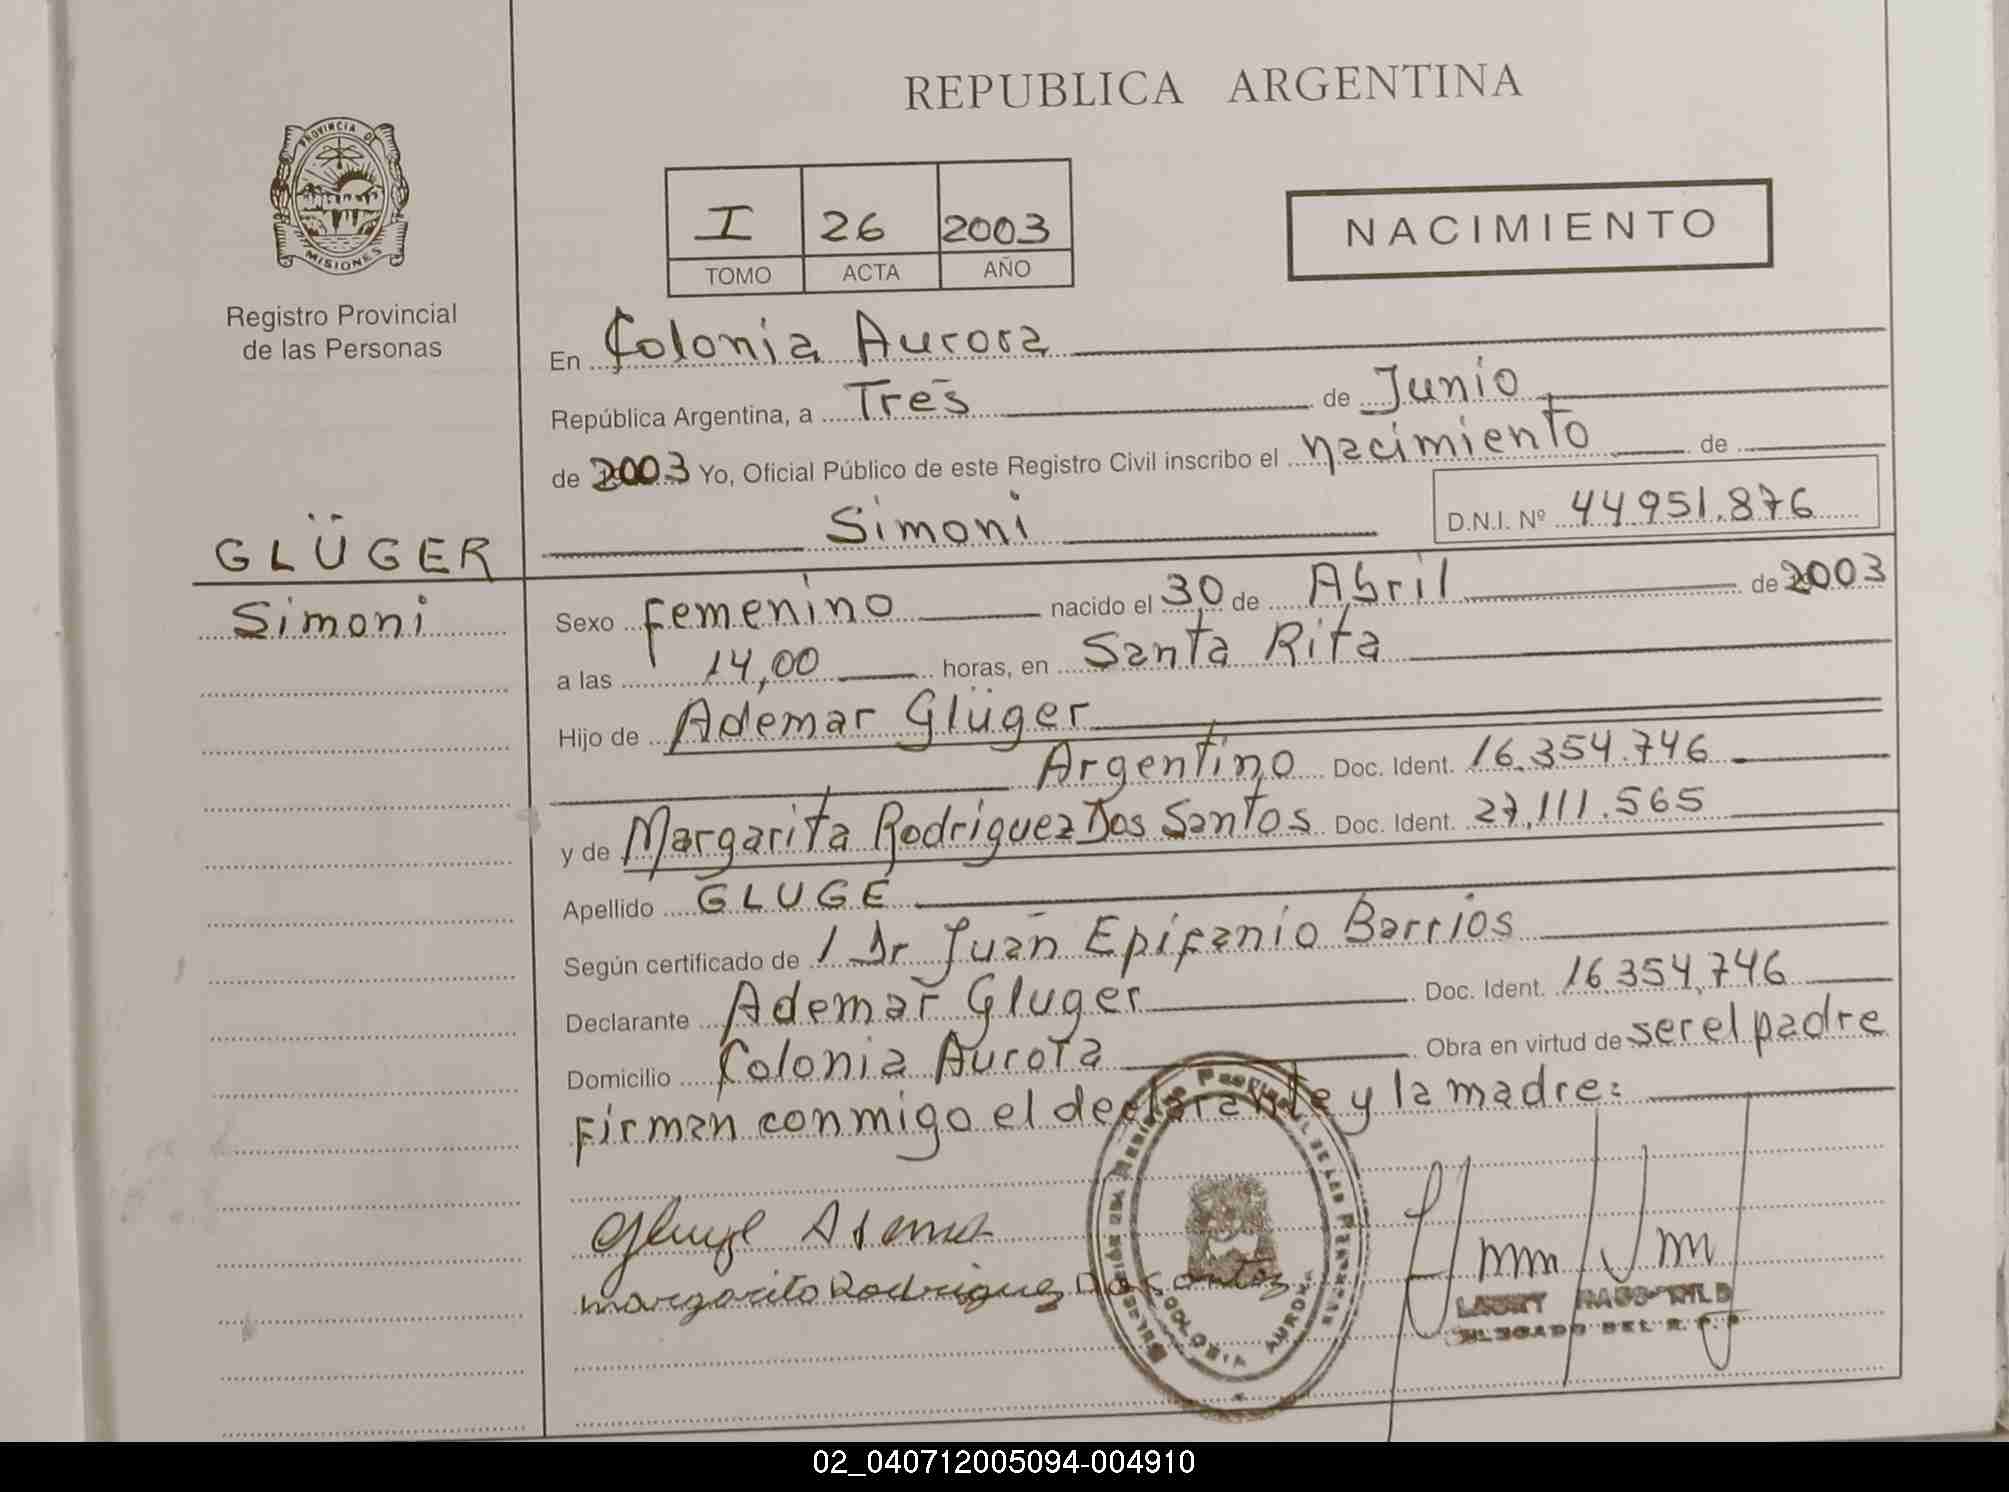 REPUBLICA ARGENTINA
PROVINCIA DE MISIONES
Registro Provincial
de las Personas
I 26 2003
TOMO ACTA AÑO
NACIMIENTO
GLÜGER
Simoni
En Colonia Aurora
República Argentina, a Tres de Junio
de 2003 Yo, Oficial Público de este Registro Civil inscribo el nacimiento de
Simoni D.N.I. Nº 44951.876
Sexo Femenino nacido el 30 de Abril de 2003
a las 14,00 horas, en Santa Rita
Hijo de Ademar Glüger
Argentino Doc. Ident. 16.354.746
y de Margarita Rodriguez Dos Santos Doc. Ident. 27.111.565
Apellido GLUGE
Según certificado de 1 Dr Juan Epifanio Barrios
Declarante Ademar Gluger Doc. Ident. 16.354.746
Domicilio Colonia Aurora Obra en virtud de ser el padre
Firman conmigo el declarante y la madre:
Margarito Rodriguez Do Santos
COLONIA AURORA
DELEGADO DEL R. P. P.
02_040712005094-004910